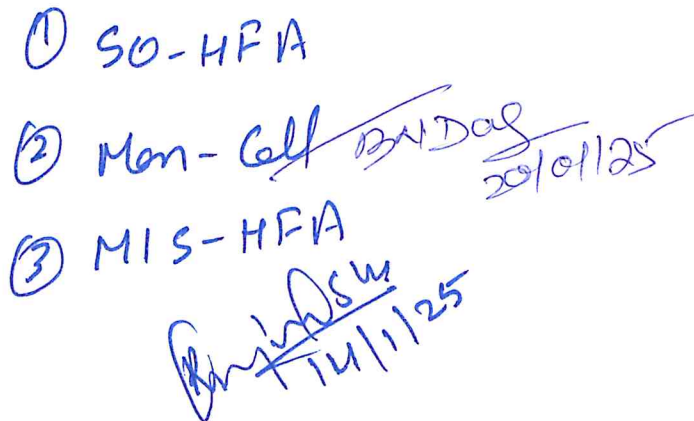 ① SO-HFA
② Mon-Cell BNDas
20/01/25
③ MIS-HFA
14/1/25